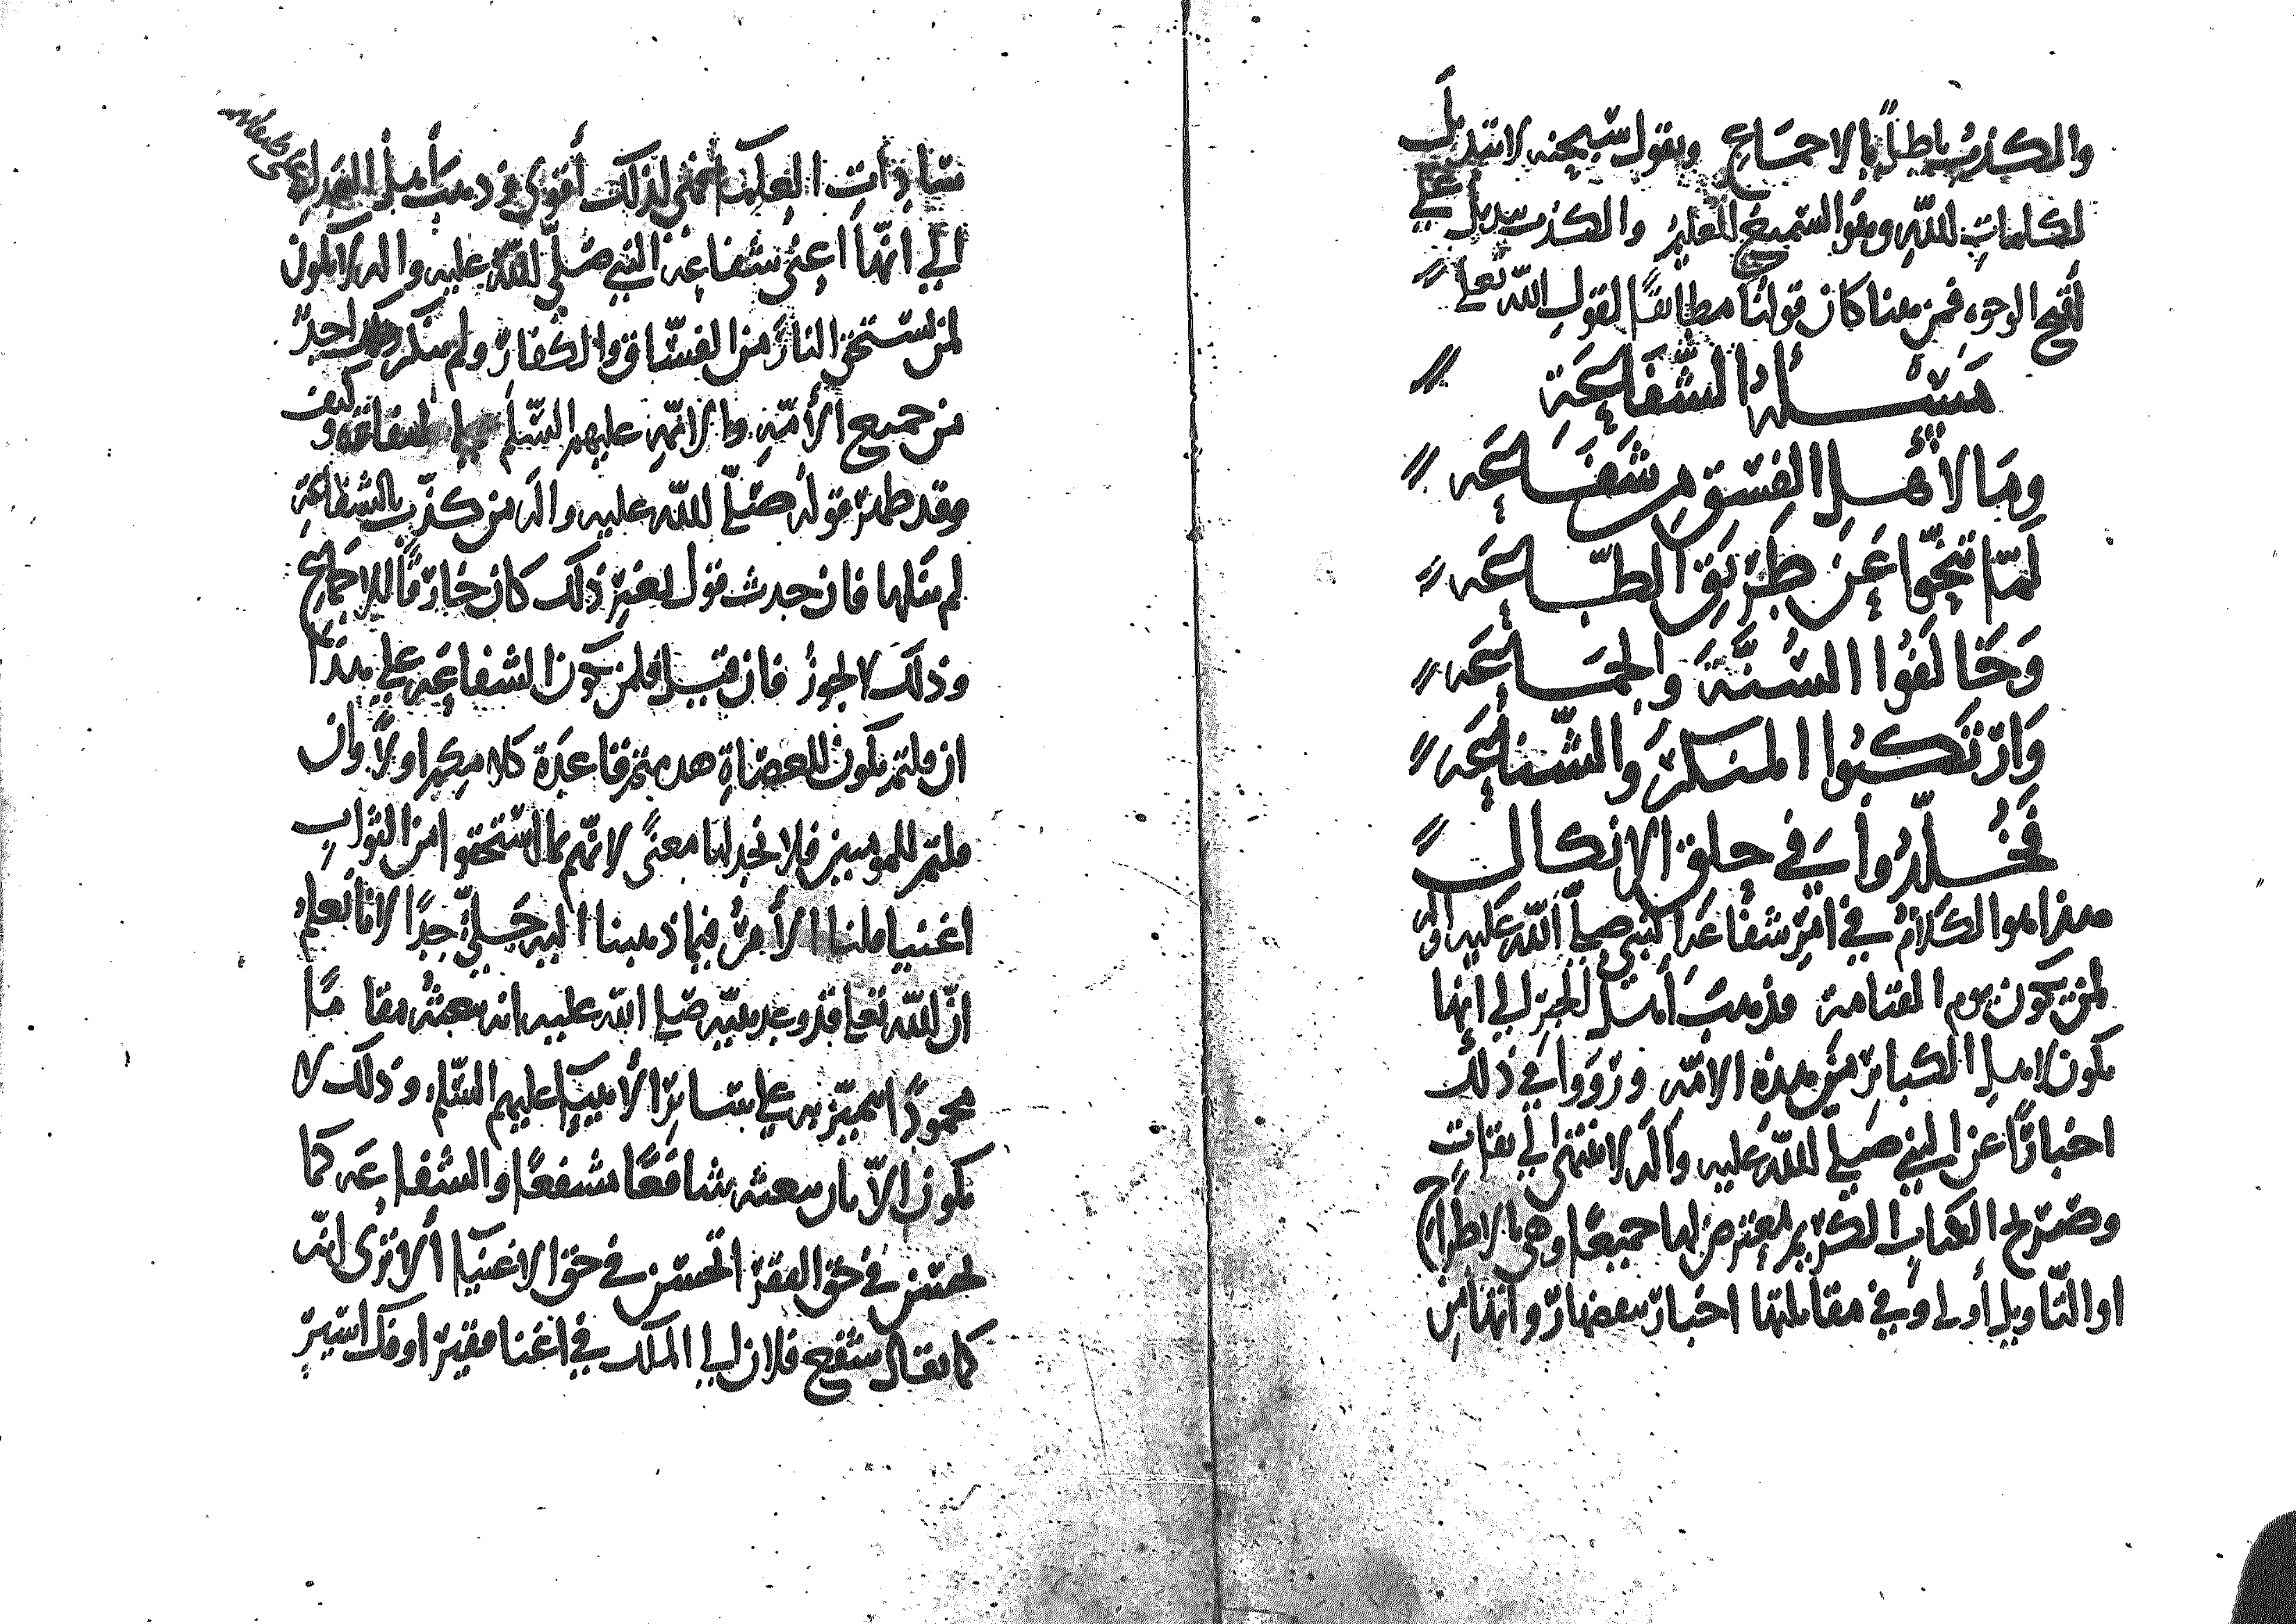 والكذب باطل بالاجماع ويقول سبحنه لا تبديل
لكلمات الله وهو السميع العليم والكذب تبديل على
أقبح الوجوه فمن هنا كان قولنا مطابقًا لقول الله تعلى
مسئلة الشفاعة
وما لأهل الفسق من شفاعه
لما تنحوا عن طريق الطاعه
وخالفوا السنة والجماعه
وارتكبوا المنكر والشناعه
فخلدوا في حلق الانكال
هذا هو الكلام في امر شفاعة النبي صلى الله عليه وآله
لمن يكون يوم القيامة فذهب أهل الجبر الى انها
يكون لاهل الكبائر من هذه الامه ورووا في ذلك
اخبارًا عن النبي صلى الله عليه وآله لا تنتهى الى ثقات
وصريح الكتاب الكريم معترض لها جميعًا وهي بالاطراح
او التأويل أولى وفي مقابلتها اخبار تعضها رواتها من
سادات العلما فهي لذلك أقوى فذهب أهل العدل
الى انها اعنى شفاعه النبي صلى الله عليه وآله لا يكون
لمن يستحق النار من الفساق والكفار ولم ينكر ذلك احد
من جميع الأمة والائمة عليهم السلم وكيف
وقد ظهر قوله صلى الله عليه وآله من كذب بالشفاعة
لم ينلها فان حدث قول لغير ذلك كان خارقًا للاجماع
وذلك لا يجوز فان قيل فلمن يكون الشفاعه على هذا
ان قلتم يكون للعصاة هدمتم قاعدة كلامكم اولًا وان
قلتم للمومنين فلا نجد لها معنىً لانهم بما استحقوا من الثواب
اغنيا قلنا الأمر فيما ذهبنا اليه جلي جدًا لانا نعلم
ان الله تعلى قد وعد نبيه صلى الله عليه انه يبعثه مقامًا
محمودًا يميز به على سائر الأنبيا عليهم السلم وذلك لا
يكون الا بان يبعثه شافعًا مشفعًا والشفاعه كما
تحسن في حق الفقرا تحسن في حق الاغنيا ألا ترى انه
كما يقال شفع فلان الى الملك في اغنا فقير او فك اسير